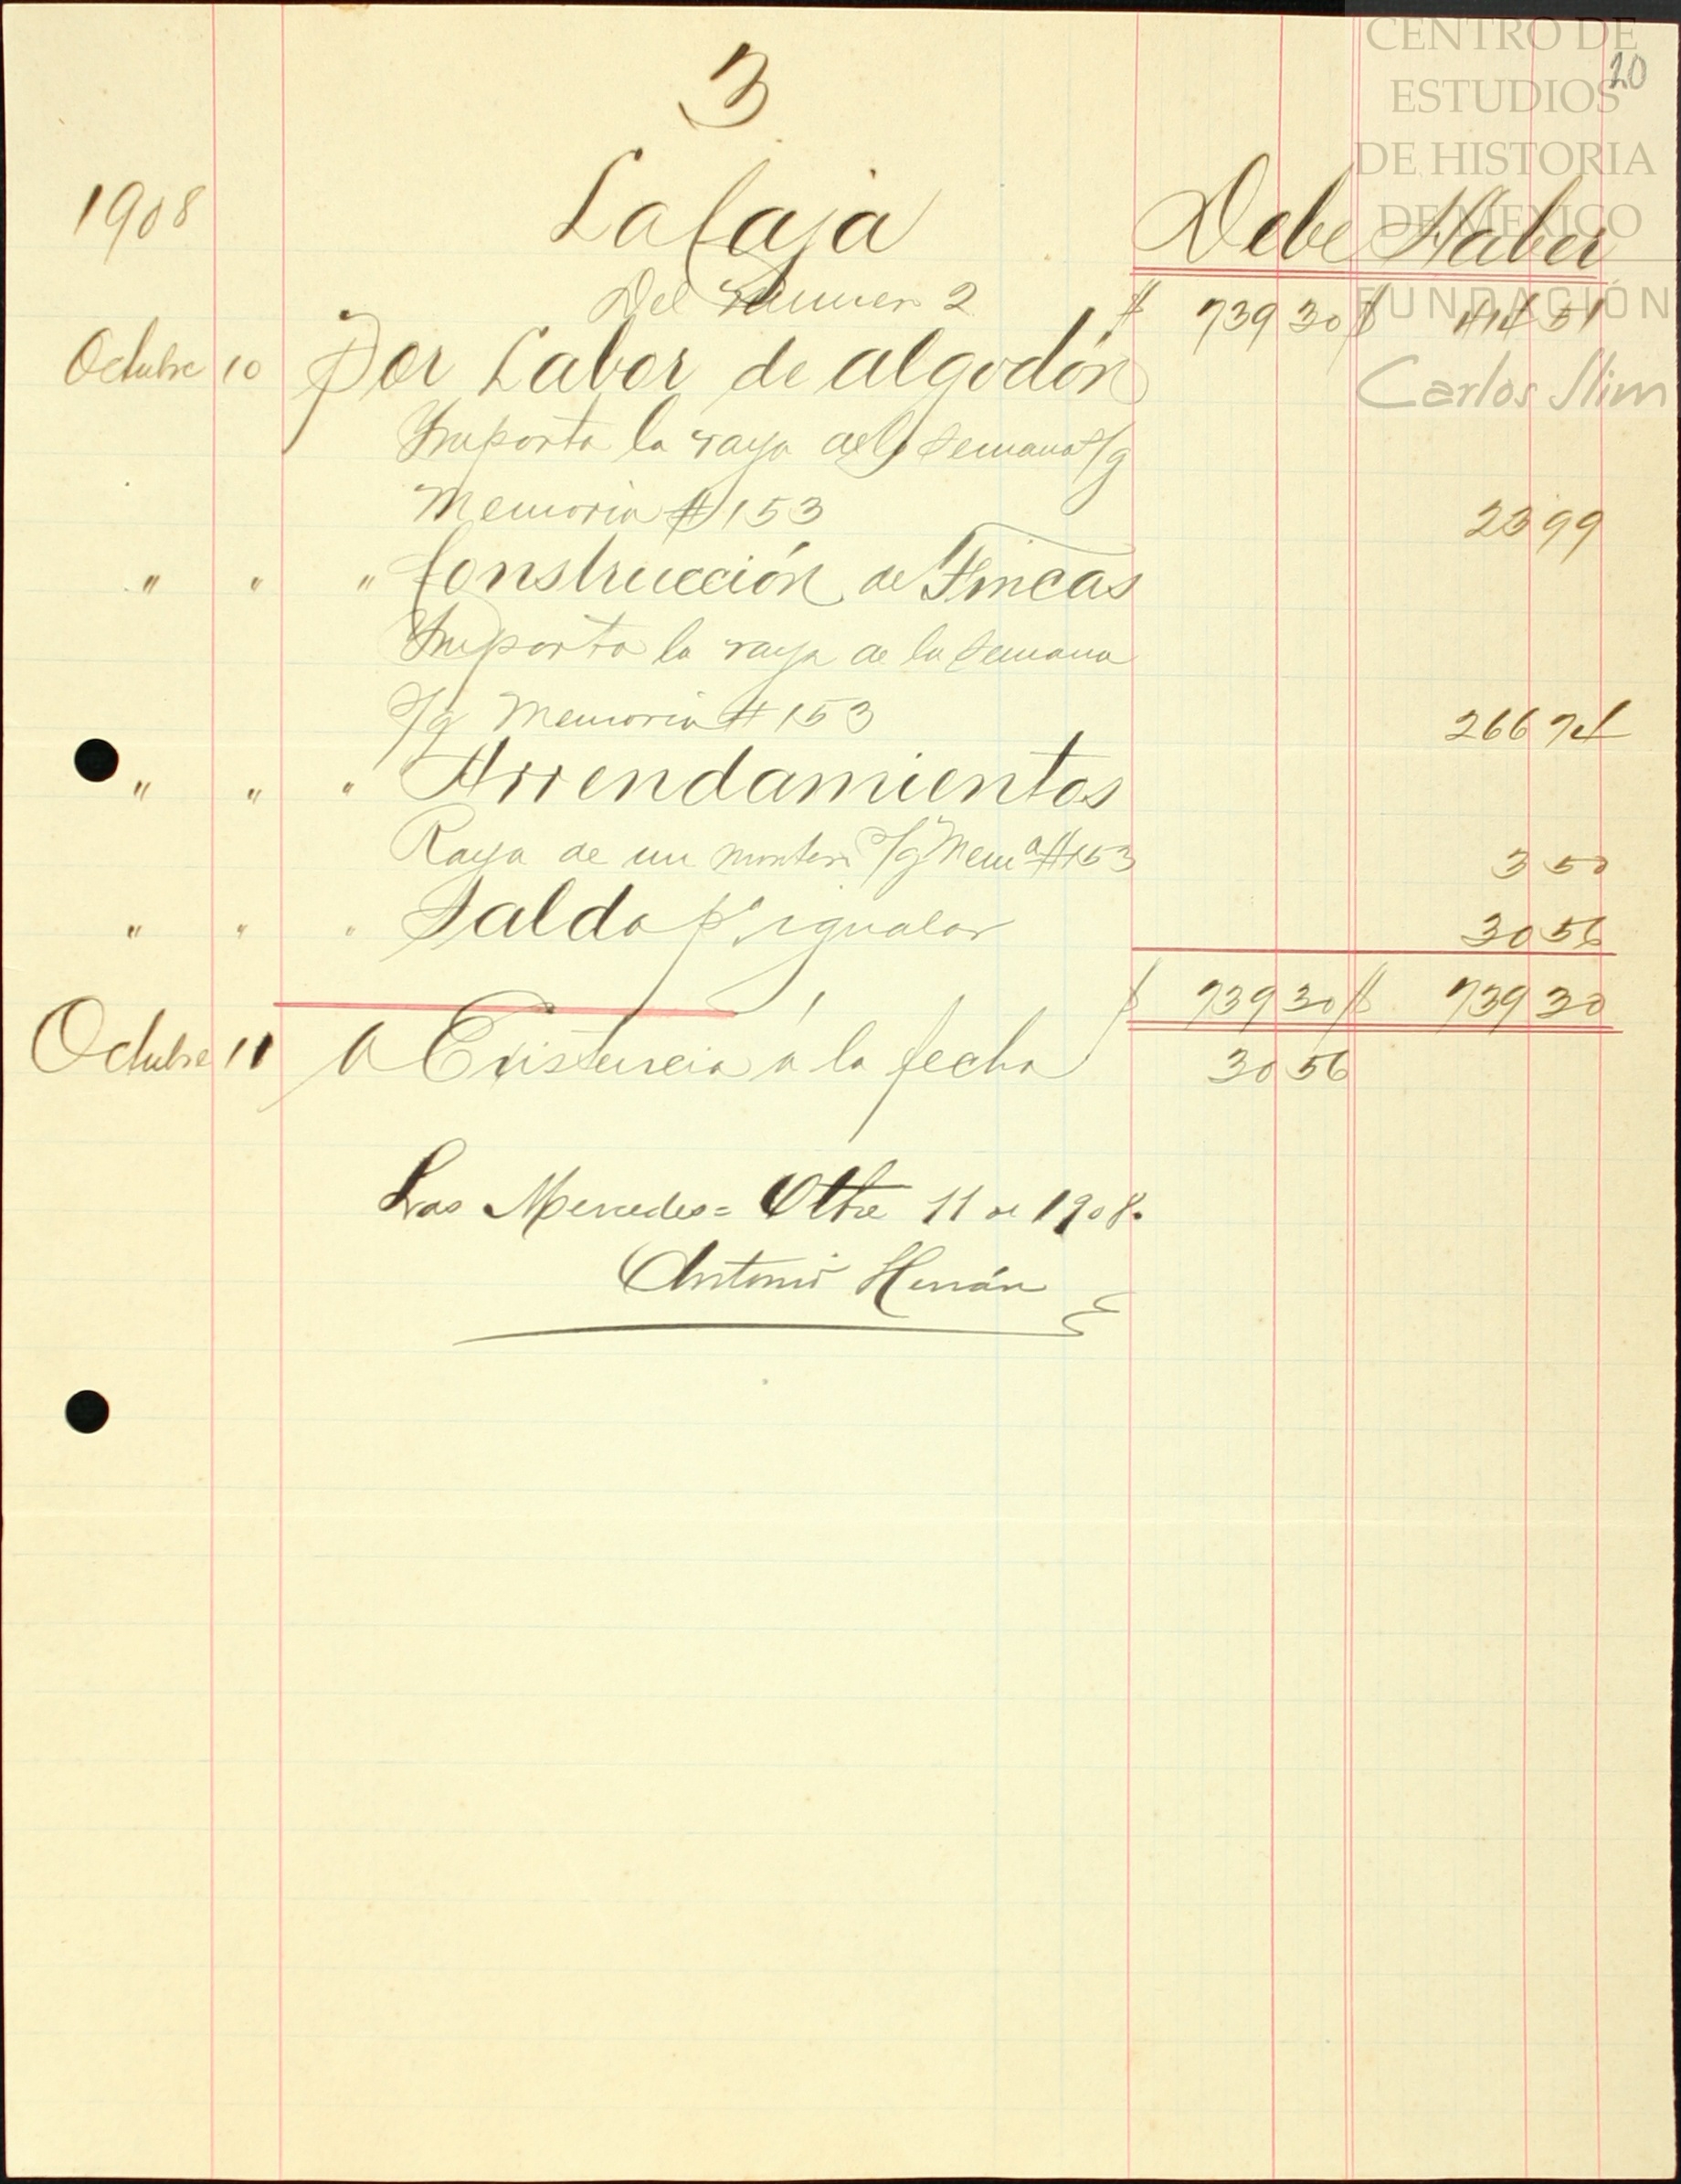 CENTRO DE
ESTUDIOS
DE HISTORIA
DE MEXICO
FUNDACIÓN
Carlos Slim
20
3
1908 La Caja Debe Haber
Del Número 2 $ 739 30 $ 414 51
Octubre 10 Por Labor de algodón
Importa la raya de la semana s/g
Memoria # 153 23 99
" " " Construcción de Fincas
Importa la raya de la semana
s/g Memoria # 153 266 74
" " " Arrendamientos
Raya de un montero s/g Memª #153 3 50
" " " Saldo pª igualar 30 56
$ 739 30 $ 739 30
Octubre 11 A Existencia á la fecha 30 56
Las Mercedes = Otbre 11 de 1908.
Antonio Hernán